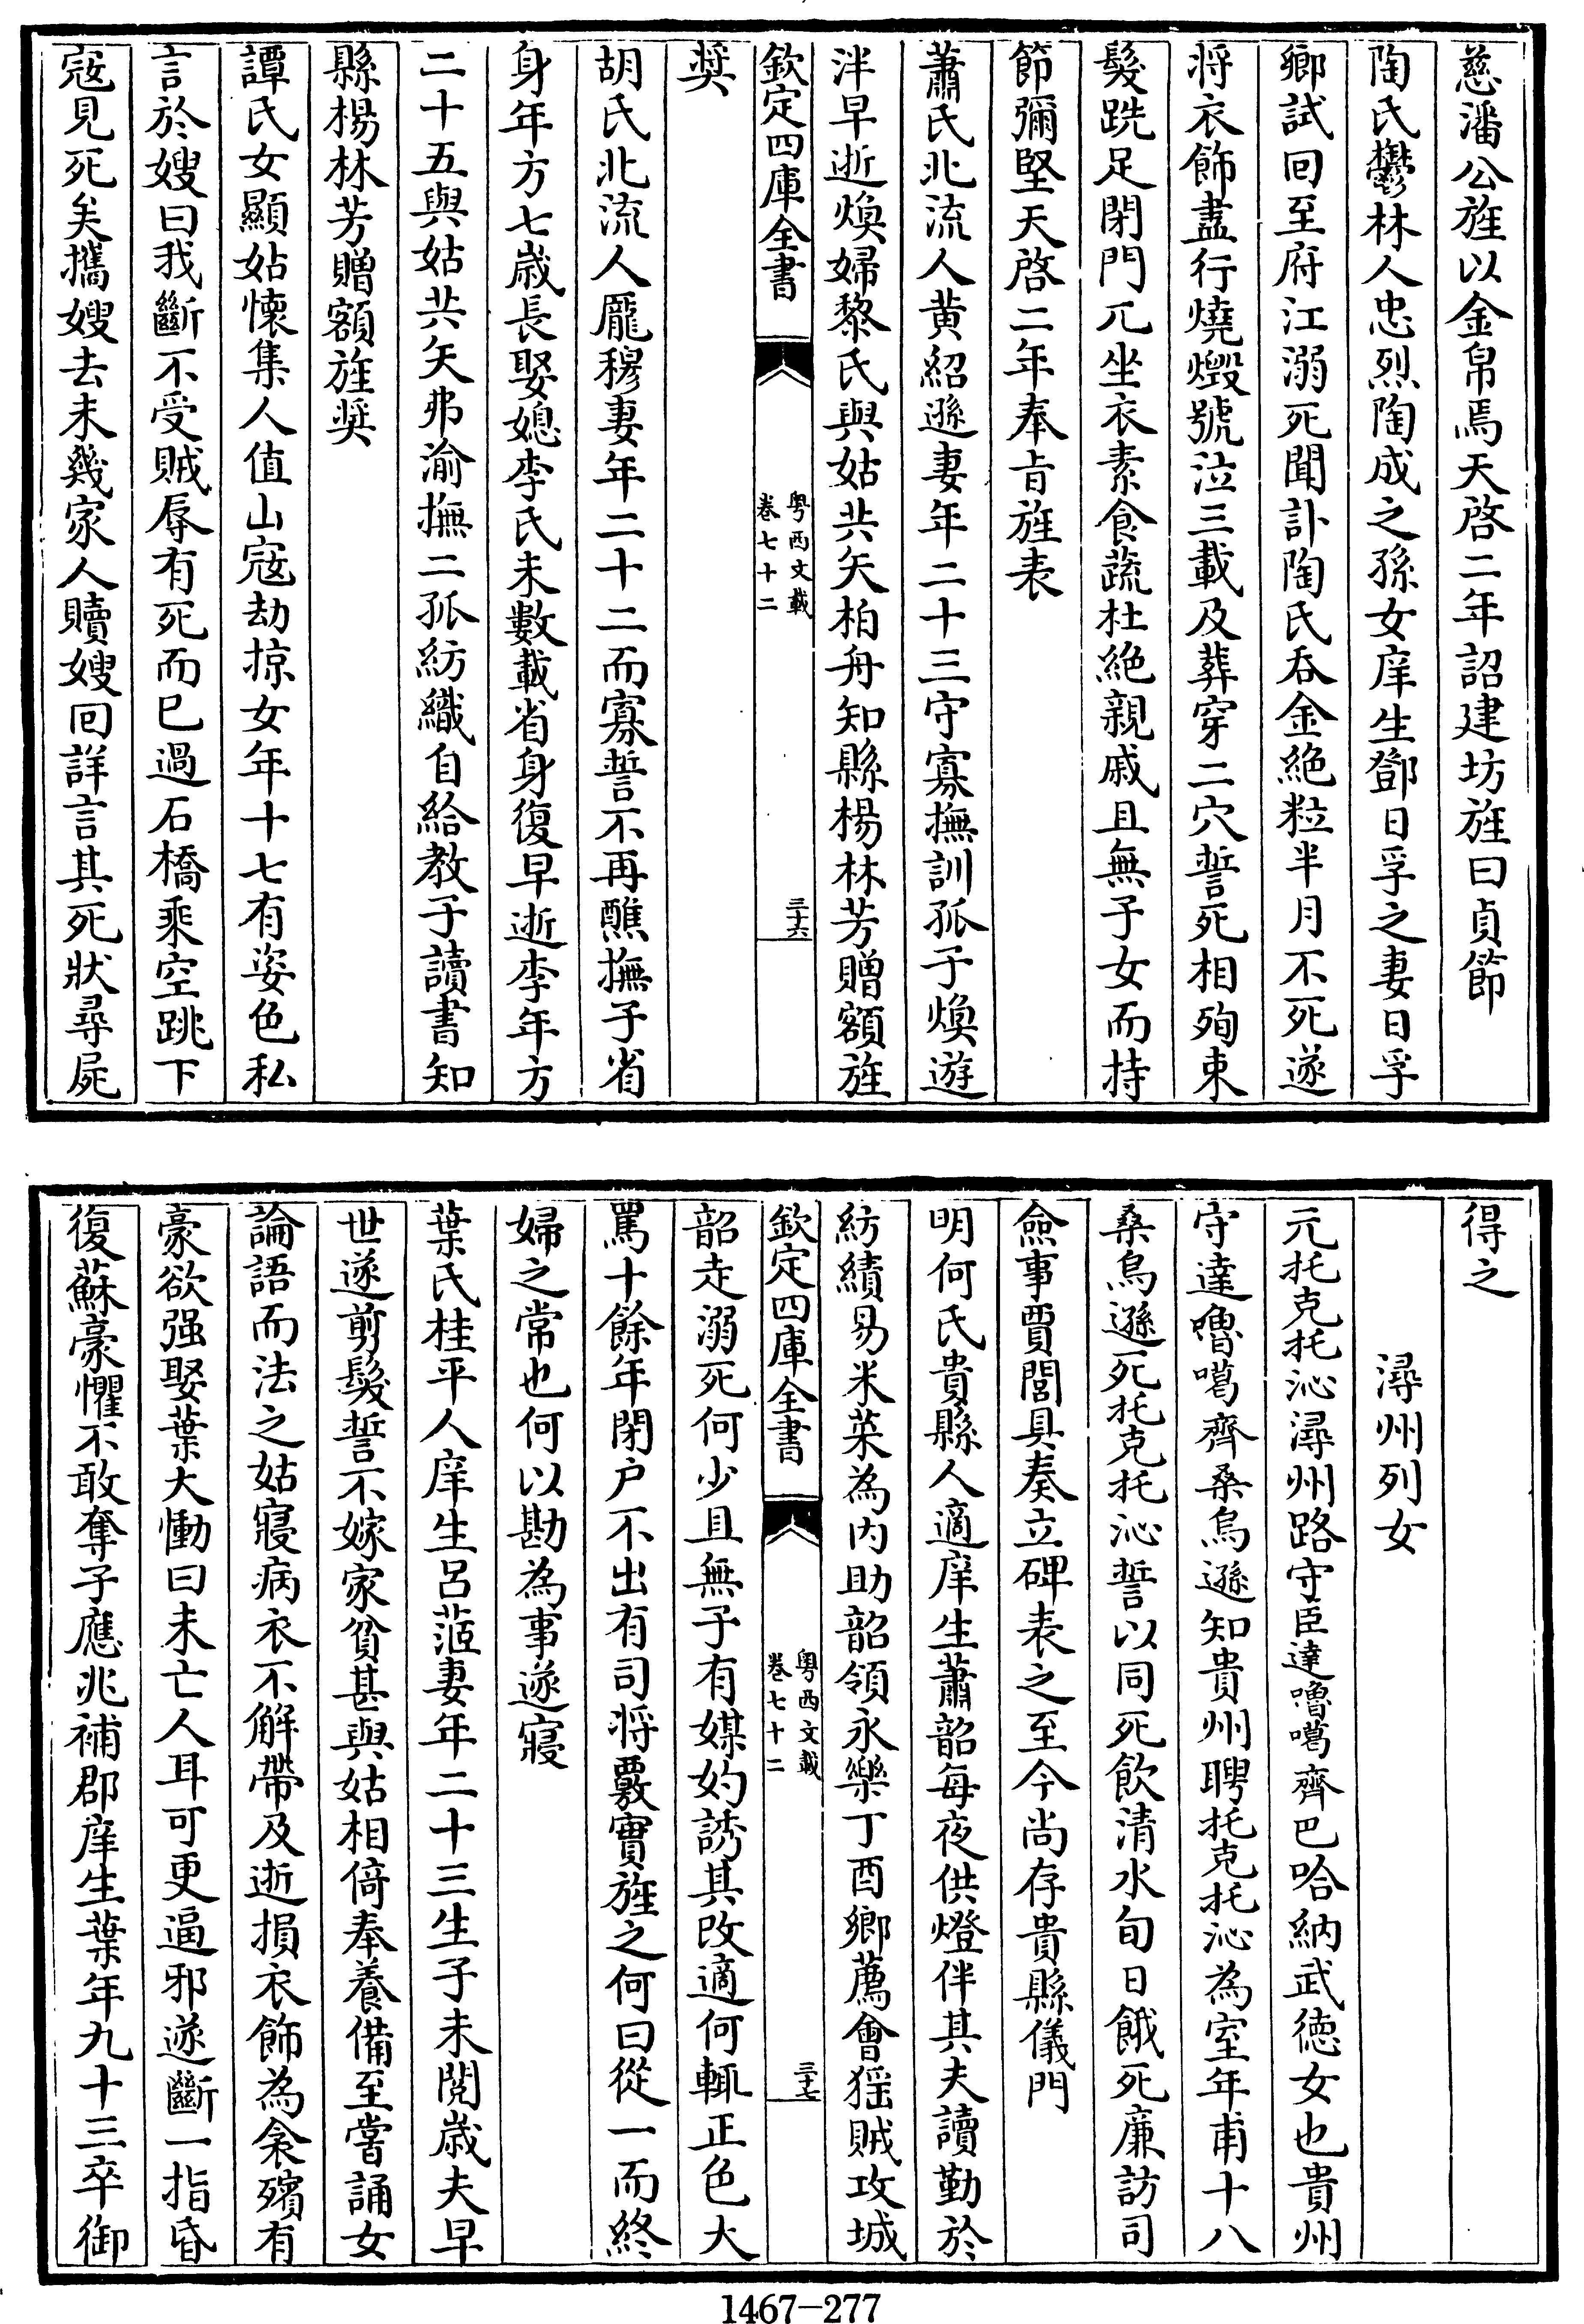 慈潘公旌以金帛焉天啓二年詔建坊旌曰貞節
陶氏鬱林人忠烈陶成之孫女庠生鄧日孚之妻日孚
鄉試回至府江溺死聞訃陶氏吞金絶粒半月不死遂
将衣飾盡行燒燬號泣三載及葬穿二穴誓死相殉束
髮跣足閉門兀坐衣素食蔬杜絶親戚且無子女而持
節彌堅天啓二年奉㫖旌表
蕭氏北流人黄紹遜妻年二十三守寡撫訓孤子煥遊
泮早逝煥婦黎氏與姑共矢柏舟知縣楊林芳贈額旌
欽定四庫全書
粤西文載
卷七十二
三十六
奬
胡氏北流人龎穆妻年二十二而寡誓不再醮撫子省
身年方七歳長娶媳李氏未數載省身復早逝李年方
二十五與姑共矢弗渝撫二孤紡織自給教子讀書知
縣楊林芳贈額旌奬
譚氏女顯姑懐集人值山寇劫掠女年十七有姿色私
言於嫂曰我斷不受賊辱有死而已過石橋乘空跳下
寇見死矣攜嫂去未幾家人贖嫂回詳言其死狀尋屍
得之
潯州列女
元托克托沁潯州路守臣達嚕噶齊巴哈納武徳女也貴州
守達嚕噶齊桑烏遜知貴州聘托克托沁為室年甫十八
桑烏遜死托克托沁誓以同死飲清水旬日餓死廉訪司
僉事賈閭具奏立碑表之至今尚存貴縣儀門
明何氏貴縣人適庠生蕭韶每夜供燈伴其夫讀勤於
紡績易米菜為内助韶領永樂丁酉鄉薦會猺賊攻城
欽定四庫全書
粤西文載
卷七十二
三十七
韶走溺死何少且無子有媒妁誘其改適何輒正色大
罵十餘年閉户不出有司将覈實旌之何曰從一而終
婦之常也何以勘為事遂寢
葉氏桂平人庠生呂蒞妻年二十三生子未閱歳夫早
世遂剪髮誓不嫁家貧甚與姑相倚奉養備至嘗誦女
論語而法之姑寢病衣不解帶及逝損衣飾為衾殯有
豪欲强娶葉大慟曰未亡人耳可更逼邪遂斷一指昏
復蘇豪懼不敢奪子應兆補郡庠生葉年九十三卒御
1467-277